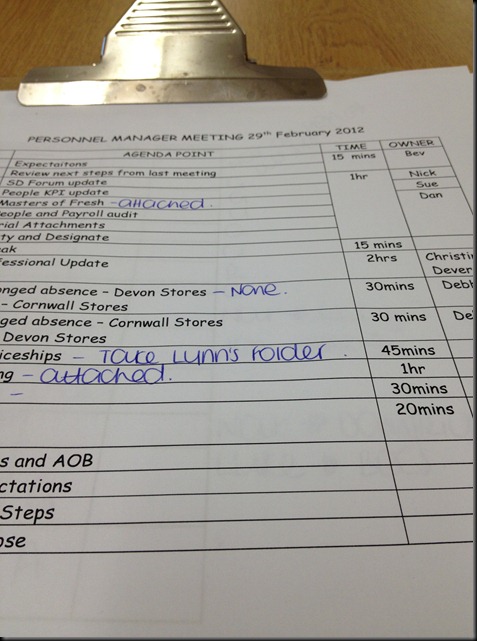 PERSONNEL MANAGER MEETING 29th February 2012
AGENDA POINT TIME OWNER
Expectaitons 15 mins Bev
Review next steps from last meeting 1hr Nick
SD Forum update Sue
People KPI update Dan
Masters of Fresh - attached.
eople and Payroll audit
rial Attachments
ty and Designate
eak 15 mins
fessional Update 2hrs Christi
Dever
onged absence - Devon Stores - None. 30mins Debb
- Cornwall Stores
nged absence - Cornwall Stores 30 mins De
Devon Stores
iceships - Take Lynn's Folder. 45mins
ng - attached. 1hr
- 30mins
20mins
s and AOB
ctations
Steps
ose